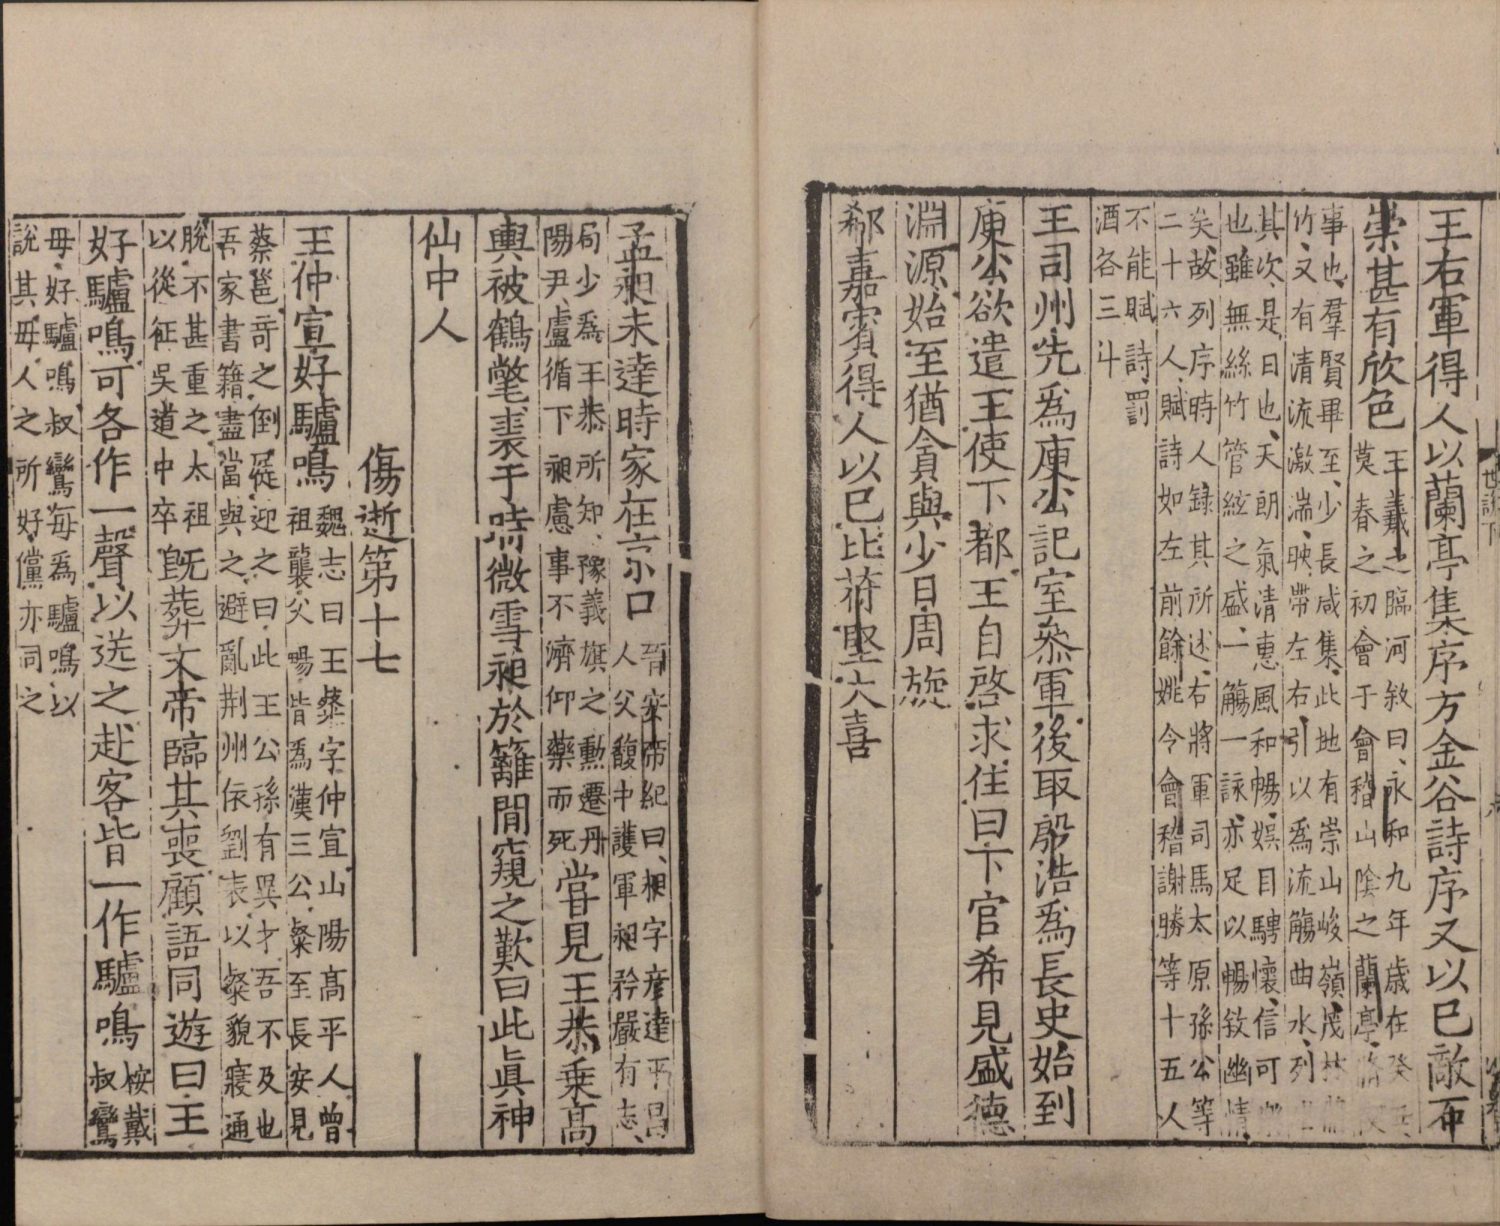 王右軍得人以蘭亭集序方金谷詩序又以已敵石
崇甚有欣色
王羲之臨河敘曰永和九年歲在癸丑
莫春之初會于會稽山陰之蘭亭
事也羣賢畢至少長咸集此地有崇山峻嶺茂林
竹又有清流激湍映帶左右引以為流觴曲水列
其次是日也天朗氣清惠風和暢娛目騁懷信可
也雖無絲竹管絃之盛一觴一詠亦足以暢敘幽情
矣故列序時人錄其所述右將軍司馬太原孫公等
二十六人賦詩如左前餘姚令會稽謝勝等十五人
不能賦詩罰
酒各三斗
王司州先為庾公記室叅軍後取殷浩為長史始到
庾公欲遣王使下都王自啓求住曰下官希見盛德
淵源始至猶貪與少日周旋
郗嘉賓得人以已比苻堅大喜
世說下
孟昶未達時家在京口
晉安帝紀曰昶字彦達平昌
人父馥中護軍昶矜嚴有志
局少為王恭所知豫義旗之勳遷丹
陽尹盧循下昶慮事不濟仰藥而死
嘗見王恭乗髙
輿被鶴氅裘于時微雪昶於籬間窺之歎曰此真神
仙中人
傷逝第十七
王仲宣好驢鳴
魏志曰王粲字仲宣山陽髙平人曾
祖襲父暢皆為漢三公粲至長安見
蔡邕竒之倒屣迎之曰此王公孫有異才吾不及也
吾家書籍盡當與之避亂荆州依劉表以粲貌寢通
脫不甚重之太祖
以從征吳道中卒
旣葬文帝臨其喪顧語同遊曰王
好驢鳴可各作一聲以送之赴客皆一作驢鳴
按戴
叔鸞
毋好驢鳴叔鸞每為驢鳴以
說其毋人之所好儻亦同之